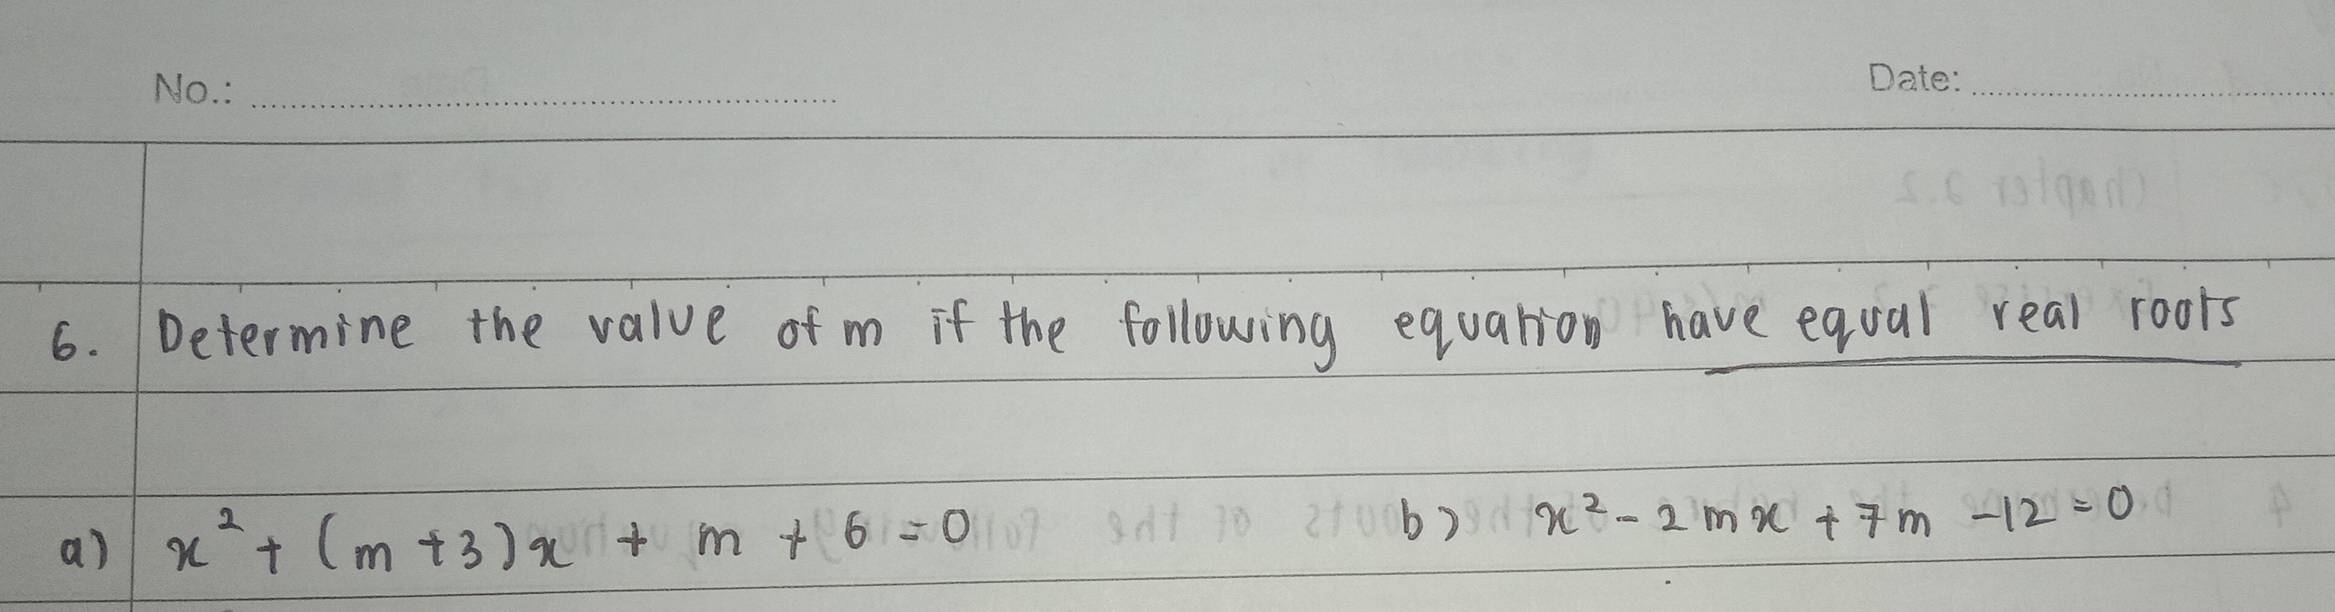 No.: Date:
6. Determine the value of m if the following equation have equal real roots
a) x² + (m + 3)x + m + 6 = 0 b) x² - 2mx + 7m - 12 = 0